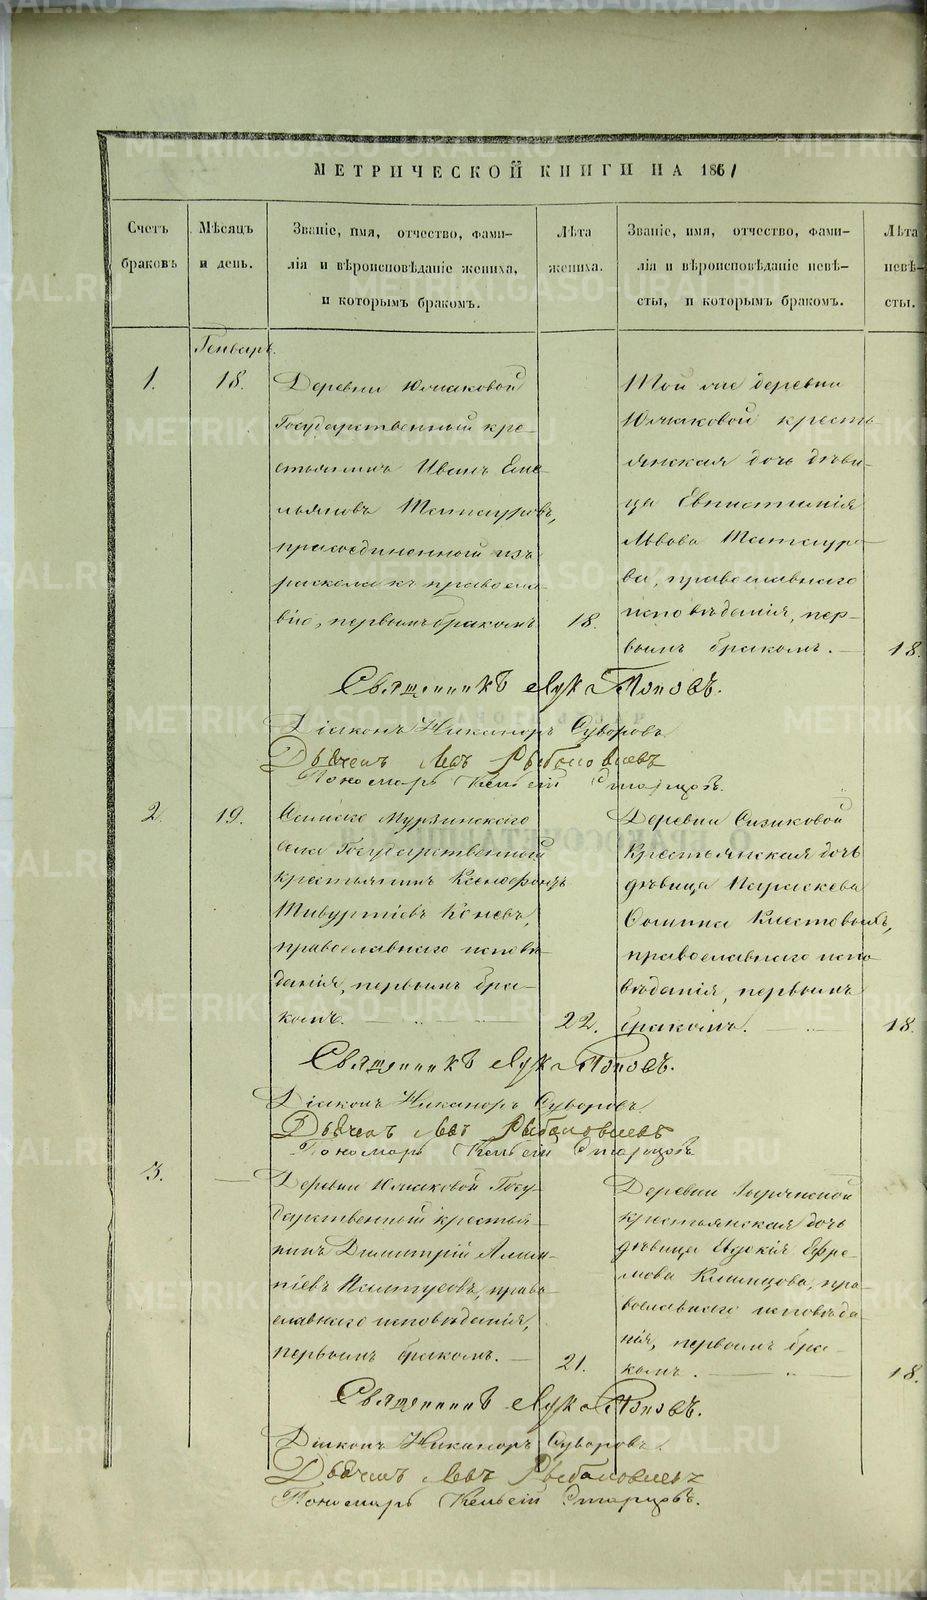 МЕТРИЧЕСКОЙ КНИГИ НА 1861
Счетъ браковъ
Мѣсяцъ и день.
Званіе, имя, отчество, фами-
лія и вѣроисповѣданіе жениха,
и которымъ бракомъ.
Лѣта жениха.
Званіе, имя, отчество, фами-
лія и вѣроисповѣданіе невѣ-
сты, и которымъ бракомъ.
Лѣта невѣ-
сты.
Генварь.
1.
18.
Деревни Южаковой
Государственный кре-
стьянинъ Иванъ Еме-
льяновъ Татауровъ,
присоединенный изъ
раскола къ правосла-
вію, первымъ бракомъ
18.
Той же деревни
Южаковой кресть-
янская дочь дѣви-
ца Евпистимія
Львова Татауро-
ва, православнаго
исповѣданія, пер-
вымъ бракомъ.
18.
Священникъ Лука Поповъ.
Діаконъ Никаноръ Суворовъ
Дьячекъ Левъ
Пономарь Старцовъ.
2.
19.
Мурзинскаго
села Государственный
крестьянинъ Ксенофонтъ
Тивуртіевъ Коневъ,
православнаго исповѣ-
данія, первымъ бра-
комъ.
22.
Деревни Сизиковой
Крестьянская дочь
дѣвица Параскева
Сомина
православнаго испо-
вѣданія, первымъ
бракомъ.
18.
Священникъ Лука Поповъ.
Діаконъ Никаноръ Суворовъ.
Дьячекъ Левъ
Пономарь Старцовъ
3.
Деревни Южаковой Госу-
дарственный крестья-
нинъ Димитрій Алим-
піевъ право-
славнаго исповѣданія,
первымъ бракомъ.
21.
Деревни Зырянской
крестьянская дочь
дѣвица Евдокія Ефре-
мова Клинцова, пра-
вославнаго исповѣда-
нія, первымъ бра-
комъ.
18.
Священникъ Лука Поповъ.
Діаконъ Никаноръ Суворовъ.
Дьячекъ Левъ
Пономарь Старцовъ.
METRIKI.GASO-URAL.RU